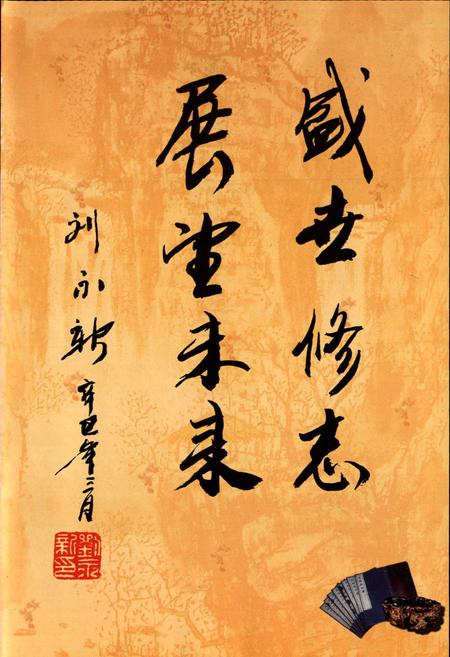 盛世修志
展望未来
刘永新
辛巳年二月
劉永
新印